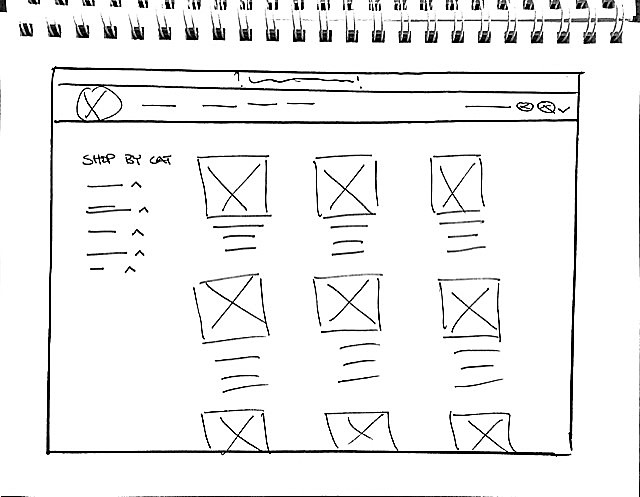 SHOP BY CAT